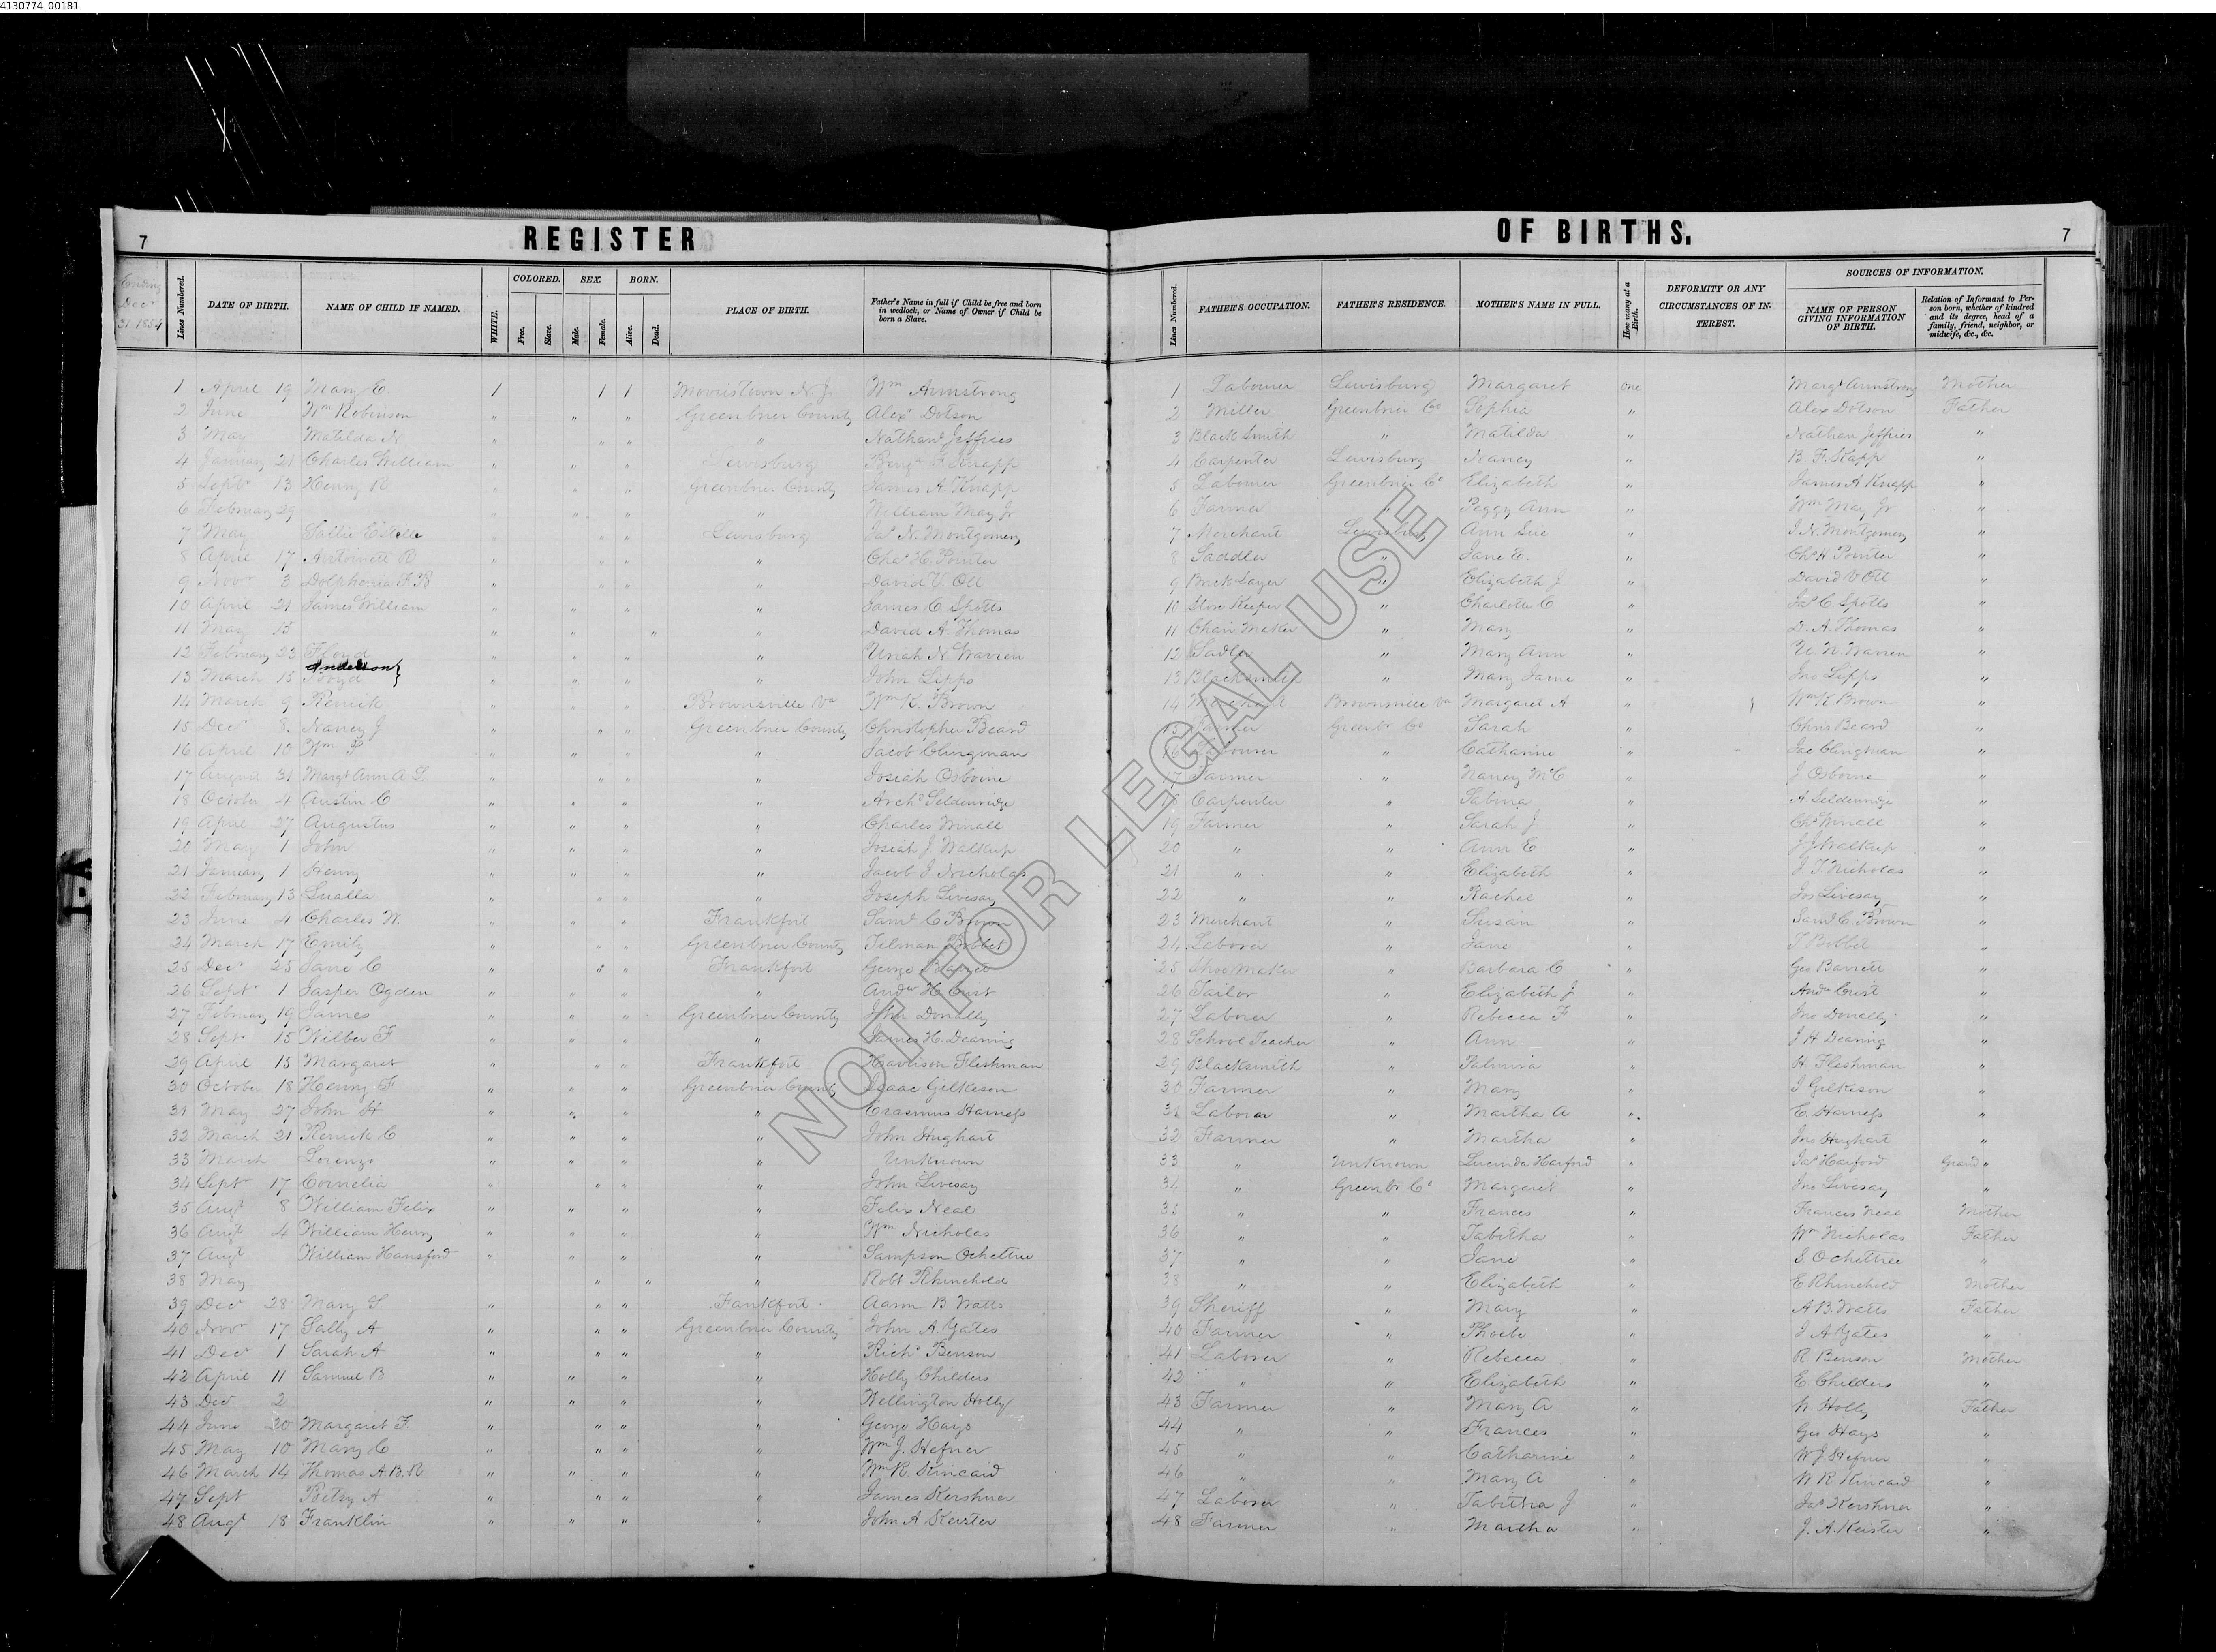 4130774_00181
7 REGISTER OF BIRTHS. 7
Ending Decr 31 1854
Lines Numbered. DATE OF BIRTH. NAME OF CHILD IF NAMED. WHITE. COLORED. Free. Slave. SEX. Male. Female. BORN. Alive. Dead. PLACE OF BIRTH. Father's Name in full if Child be free and born in wedlock, or Name of Owner if Child be born a Slave.
Lines Numbered. FATHER'S OCCUPATION. FATHER'S RESIDENCE. MOTHER'S NAME IN FULL. How many at a Birth. DEFORMITY OR ANY CIRCUMSTANCES OF INTEREST. SOURCES OF INFORMATION. NAME OF PERSON GIVING INFORMATION OF BIRTH. Relation of Informant to Person born, whether of kindred and its degree, head of a family, friend, neighbor, or midwife, &c., &c.
1 April 19 Mary E 1 1 1 Morristown N.J. Wm Armstrong 1 Labourer Lewisburg Margaret one Margt Armstrong Mother
2 June Wm Robinson " " " Greenbrier County Alexr Dotson 2 Miller Greenbrier Co Sophia " Alex Dotson Father
3 May Matilda N " " " " Nathanl Jeffries 3 Black Smith " Matilda " Nathan Jeffries "
4 January 21 Charles William " " " Lewisburg Benjn F. Knapp 4 Carpenter Lewisburg Nancy " B. F. Knapp "
5 Septr 13 Henry R " " " Greenbrier County James A. Knapp 5 Labourer Greenbrier Co Elizabeth " James A Knapp "
6 February 29 " " " " William May Jr 6 Farmer " Peggy Ann " Wm May Jr "
7 May Sallie Estelle " " " Lewisburg Jas N. Montgomery 7 Merchant Lewisburg Ann Sue " J. N. Montgomery "
8 April 17 Antoinett R " " " " Chas H. Pointer 8 Saddler " Jane E. " Chs H. Pointer "
9 Novr 3 " " " " David V. Ott 9 Brick Layer " Elizabeth J " David V Ott "
10 April 21 James William " " " " James C. Spotts 10 Store Keeper " Charlotte C " Jas C. Spotts "
11 May 15 " " " " David A. Thomas 11 Chair Maker " Mary " D. A. Thomas "
12 February 23 Floyd " " " " Uriah N. Warren 12 Sadler " Mary Ann " U. N. Warren "
Anderson}
13 March 15 Boyd " " " " John Sipps 13 Blacksmith " Mary Jane " Jno Sipps "
14 March 9 Renick " " " Brownsville Va Wm K. Brown 14 Merchant Brownsville Va Margaret A " Wm K Brown "
15 Decr 8 Nancy J " " " Greenbrier County Christopher Beard 15 Farmer Greenbr Co Sarah " Chris Beard "
16 April 10 Wm P " " " " Jacob Clingman 16 Labourer " Catharine " Jac Clingman "
17 August 31 Margt Ann A L " " " " Josiah Osborne 17 Farmer " Nancy McC " J Osborne "
18 October 4 Austin C " " " " Archd Seldenridge 18 Carpenter " Sabina " A Seldenridge "
19 April 27 Augustus " " " " Charles Winall 19 Farmer " Sarah J " Chs Winall "
20 May 1 John " " " " Josiah J. Walkup 20 " " Ann E " J J Walkup "
21 January 1 Henry " " " " Jacob I. Nicholas 21 " " Elizabeth " J. I. Nicholas "
22 February 13 Lualla " " " " Joseph Livesay 22 " " Rachel " Jos Livesay "
23 June 4 Charles W. " " " Frankfort Saml C Brown 23 Merchant " Susan " Saml C. Brown "
24 March 17 Emily " " " Greenbrier County Tilman Bobbet 24 Laborer " Jane " T Bobbet "
25 Decr 25 Jane C " " " Frankfort George Barret 25 Shoe Maker " Barbara C " Geo Barrett "
26 Septr 1 Jasper Ogden " " " " Andw H. Crist 26 Tailor " Elizabeth J " Andw Crist "
27 February 19 James " " " Greenbrier County John Donally 27 Laborer " Rebecca F " Jno Donelly "
28 Septr 15 Wilber F " " " " James H. Dearing 28 School Teacher " Ann " J H Dearing "
29 April 15 Margaret " " " Frankfort Harrison Fleshman 29 Blacksmith " Palmira " H Fleshman "
30 October 18 Henry F " " " Greenbrier County Isaac Gilkeson 30 Farmer " Mary " I Gilkeson "
31 May 27 John H " " " " Erasmus Harness 31 Laborer " Martha A " E. Harness "
32 March 21 Renick C " " " " John Hughart 32 Farmer " Martha " Jno Hughart "
33 March Lorenzo " " " " Unknown 33 " Unknown Lucinda Harford " Jas Harford Grand "
34 Sept 17 Cornelia " " " " John Livesay 34 " Greenbr Co Margaret " Jno Livesay "
35 Augt 8 William Felix " " " " Felix Neal 35 " " Frances " Frances Neal Mother
36 Augt 4 William Henry " " " " Wm Nicholas 36 " " Tabitha " Wm Nicholas Father
37 Augt William Hansford " " " " Sampson Ocheltree 37 " " Jane " S Ocheltree "
38 May " " " Robt Rhinehold 38 " " Elizabeth " E Rhinehold Mother
39 Decr 28 Mary S " " " Fankfort Aaron B Watts 39 Sheriff " Mary " A. B. Watts Father
40 Novr 17 Sally A " " " Greenbrier County John A. Yates 40 Farmer " Phoebe " J A Yates "
41 Decr 1 Sarah A " " " " Richd Benson 41 Laborer " Rebecca " R. Benson Mother
42 April 11 Samuel B " " " " Holly Childers 42 " " Elizabeth " E. Childers "
43 Decr 2 " " " " Wellington Holly 43 Farmer " Mary A " W. Holly Father
44 June 20 Margaret F. " " " " George Hays 44 " " Frances " Geo Hays "
45 May 10 Mary C " " " " Wm J. Hefner 45 " " Catharine " W J Hefner "
46 March 14 Thomas A.B.R " " " " Wm R. Kincaid 46 " " Mary A " W. R. Kincaid "
47 Sept Betsy A " " " " James Kershner 47 Laborer " Tabitha J " Jas Kershner "
48 Augt 18 Franklin " " " " John A Keister 48 Farmer " Martha " J. A. Keister "
NOT FOR LEGAL USE